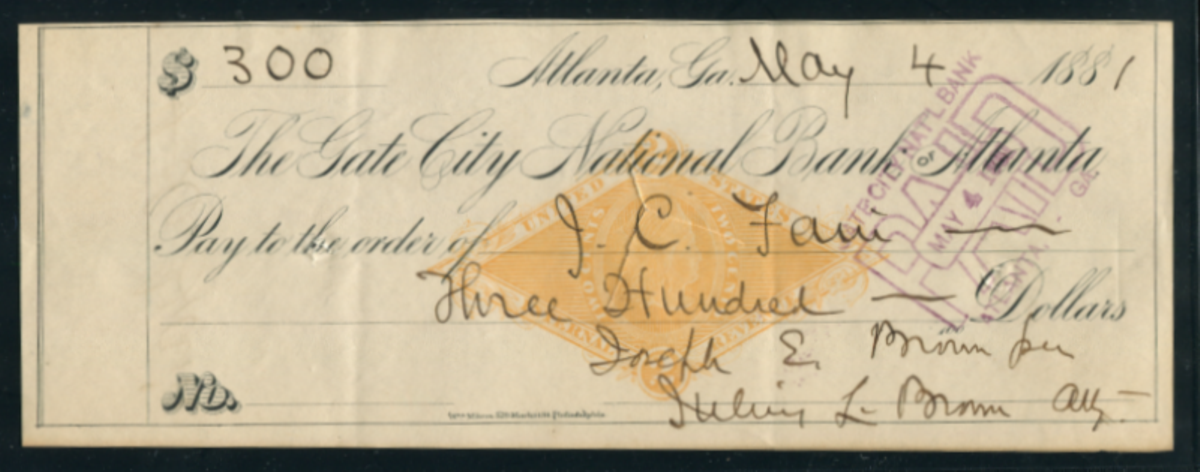 $ 300 Atlanta, Ga. May 4 1881
The Gate City National Bank of Atlanta,
Pay to the order of J. C. Fain
Three Hundred Dollars
Joseph E. Brown per
No. Julius L. Brown Atty
UNITED STATES
INTERNAL REVENUE
TWO CENTS
CITY NAT'L BANK
PAID
MAY 4
ATLANTA, GA.